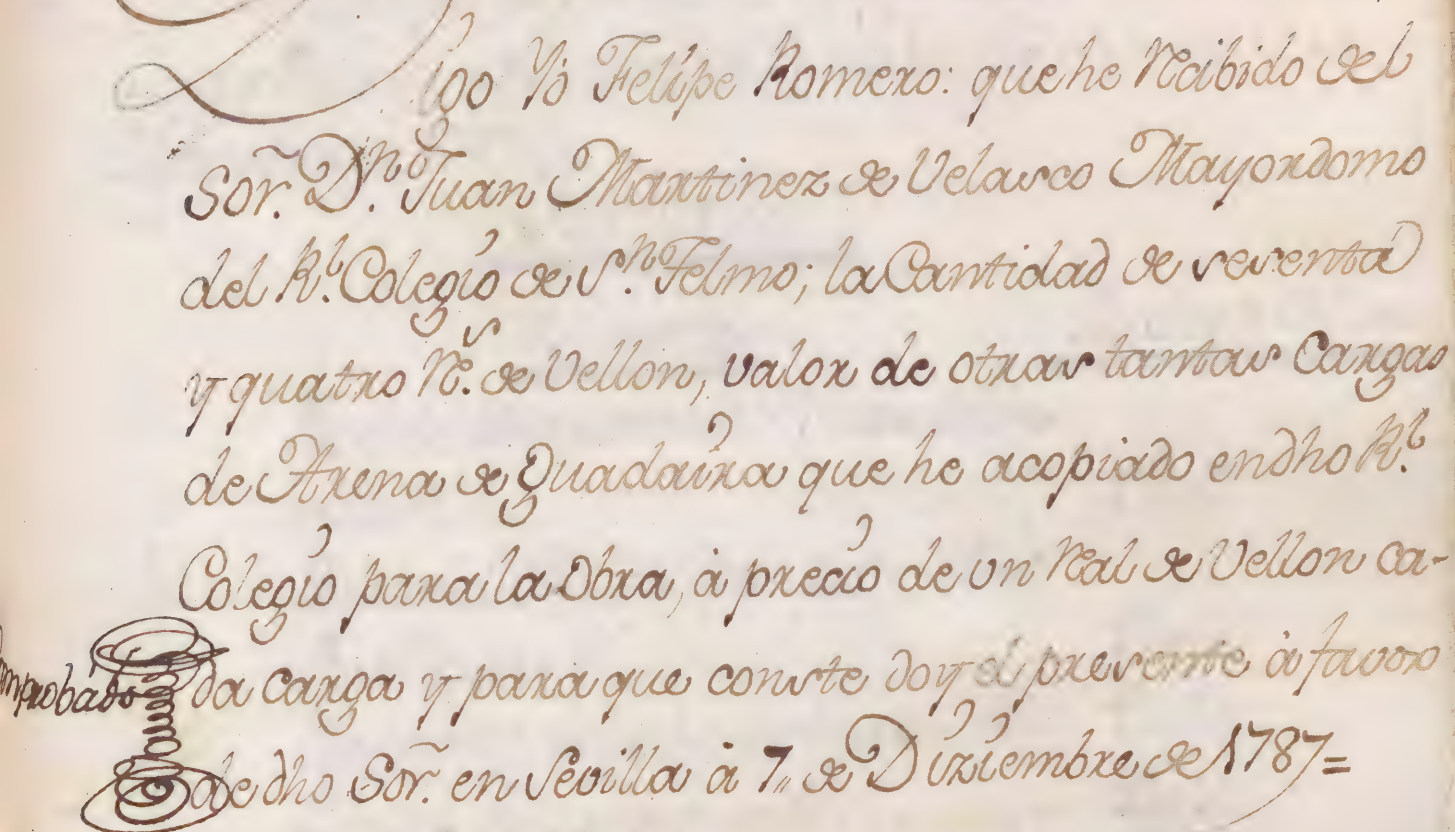 Digo Yó Felípe Romero: que he Recibido del
Sor. Dn. Juan Martinez de Velasco Mayordomo
del Rl. Colegio de Sn. Telmo; la Cantidad de sesenta
y quatro Rs. de Vellon, valor de otras tantas Cargas
de Arena de Guadaira que he acopiado en dho Rl.
Colegio para la Obra, à precio de un Real de Vellon ca-
da carga y para que conste doy el presente à favor
Comprobádo
de dho Sor. en Sevilla à 7,, de Diziembre de 1787=